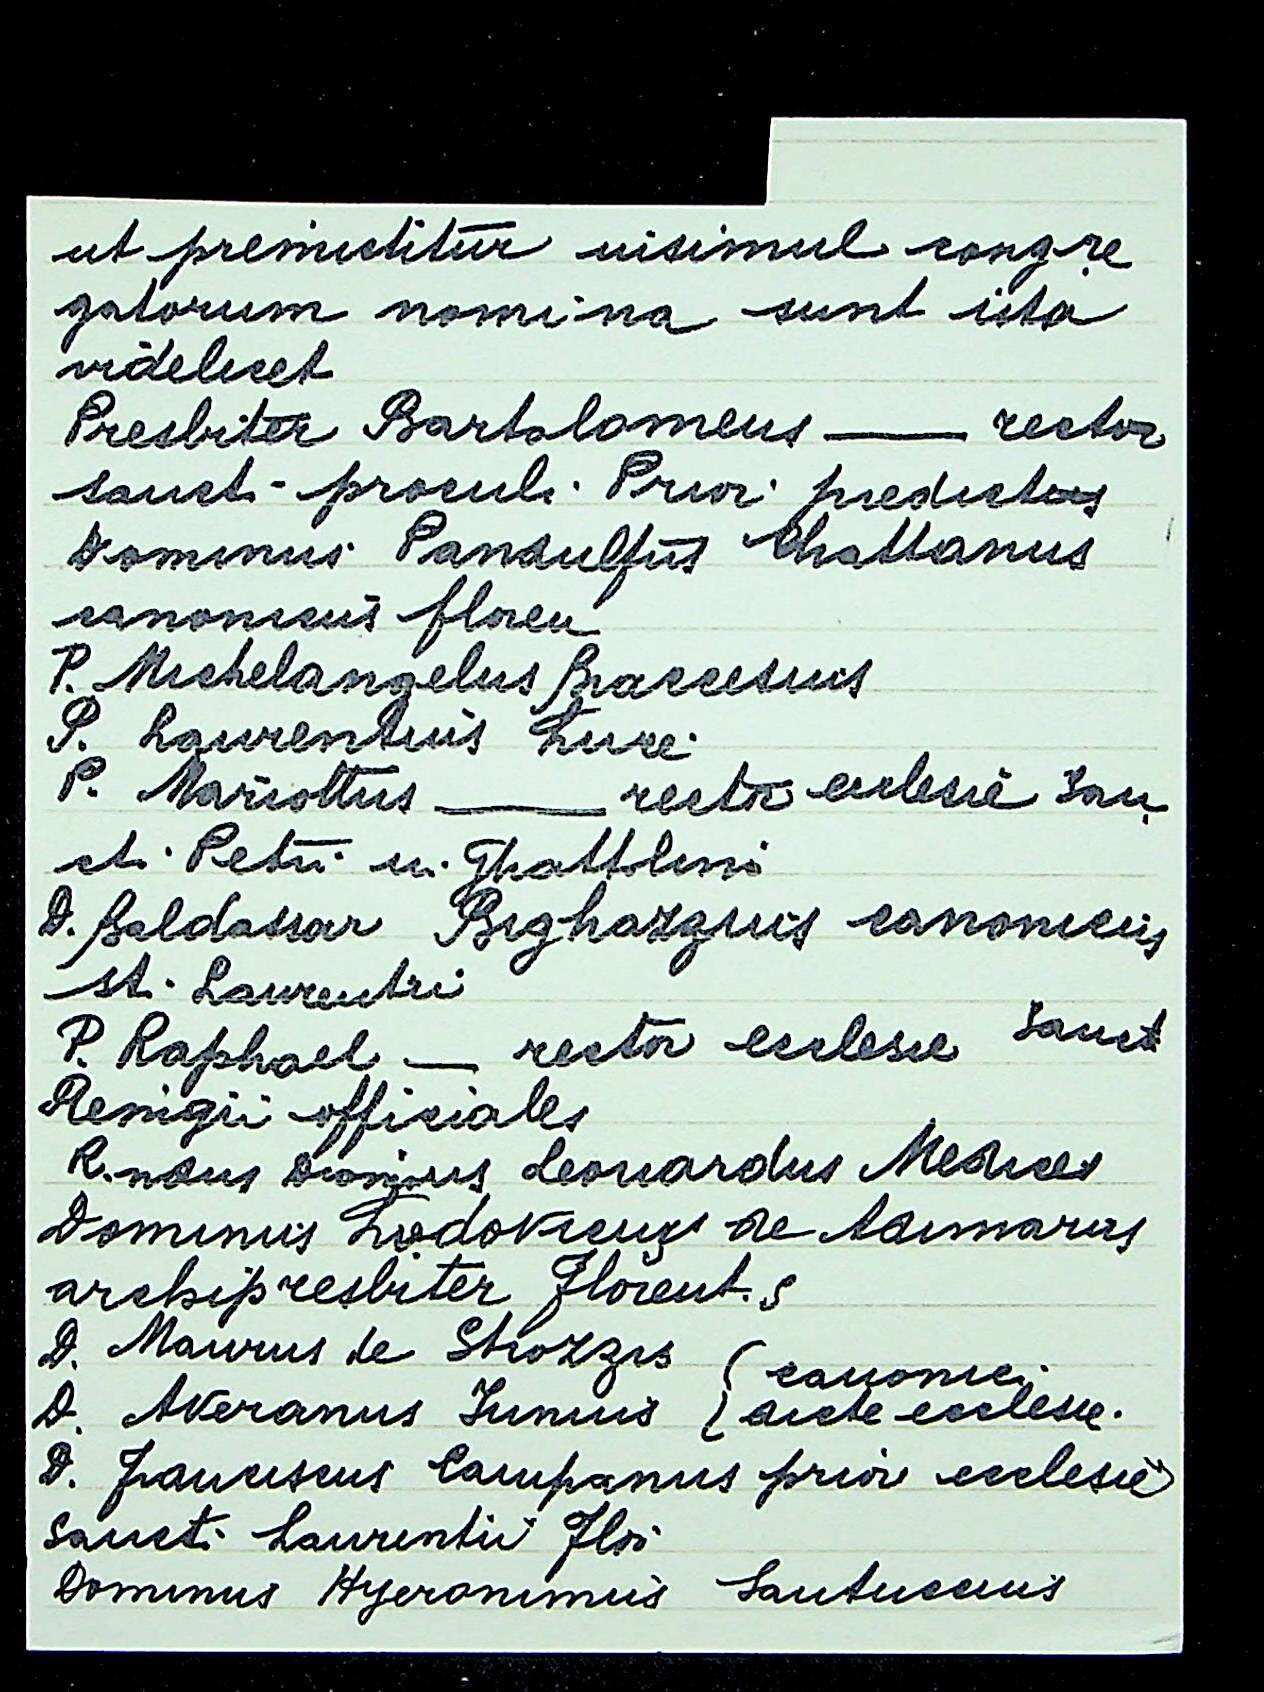 ut premictitur unsimul congre
gatorum nomina sunt ista
videlicet
Presbiter Bartolomeus ___ rector
sancti proculi. Prior predictus
Dominus Pandulfus Chattanus
canonicus floren
P. Michelangelus Braccesius
P. Laurentius Luce
P. Mariottus ___ rector ecclesie San
cti Petri in Ghattolino
D. Baldassar Bighazzius canonicus
st. Laurentii
P. Raphael __ rector ecclesie Sanct
Remigii officiales
R.ndus Dominus Leonardus Medices
Dominus Lodovicus de Adimaris
archipresbiter Florent.s
D. Maurus de Strozzis
D. Averanus Iunius
canonici
dicte ecclesie.
D. Franciscus Campanus prior ecclesie
Sancti Laurentii Flo
Dominus Hyeronimus Santuccius